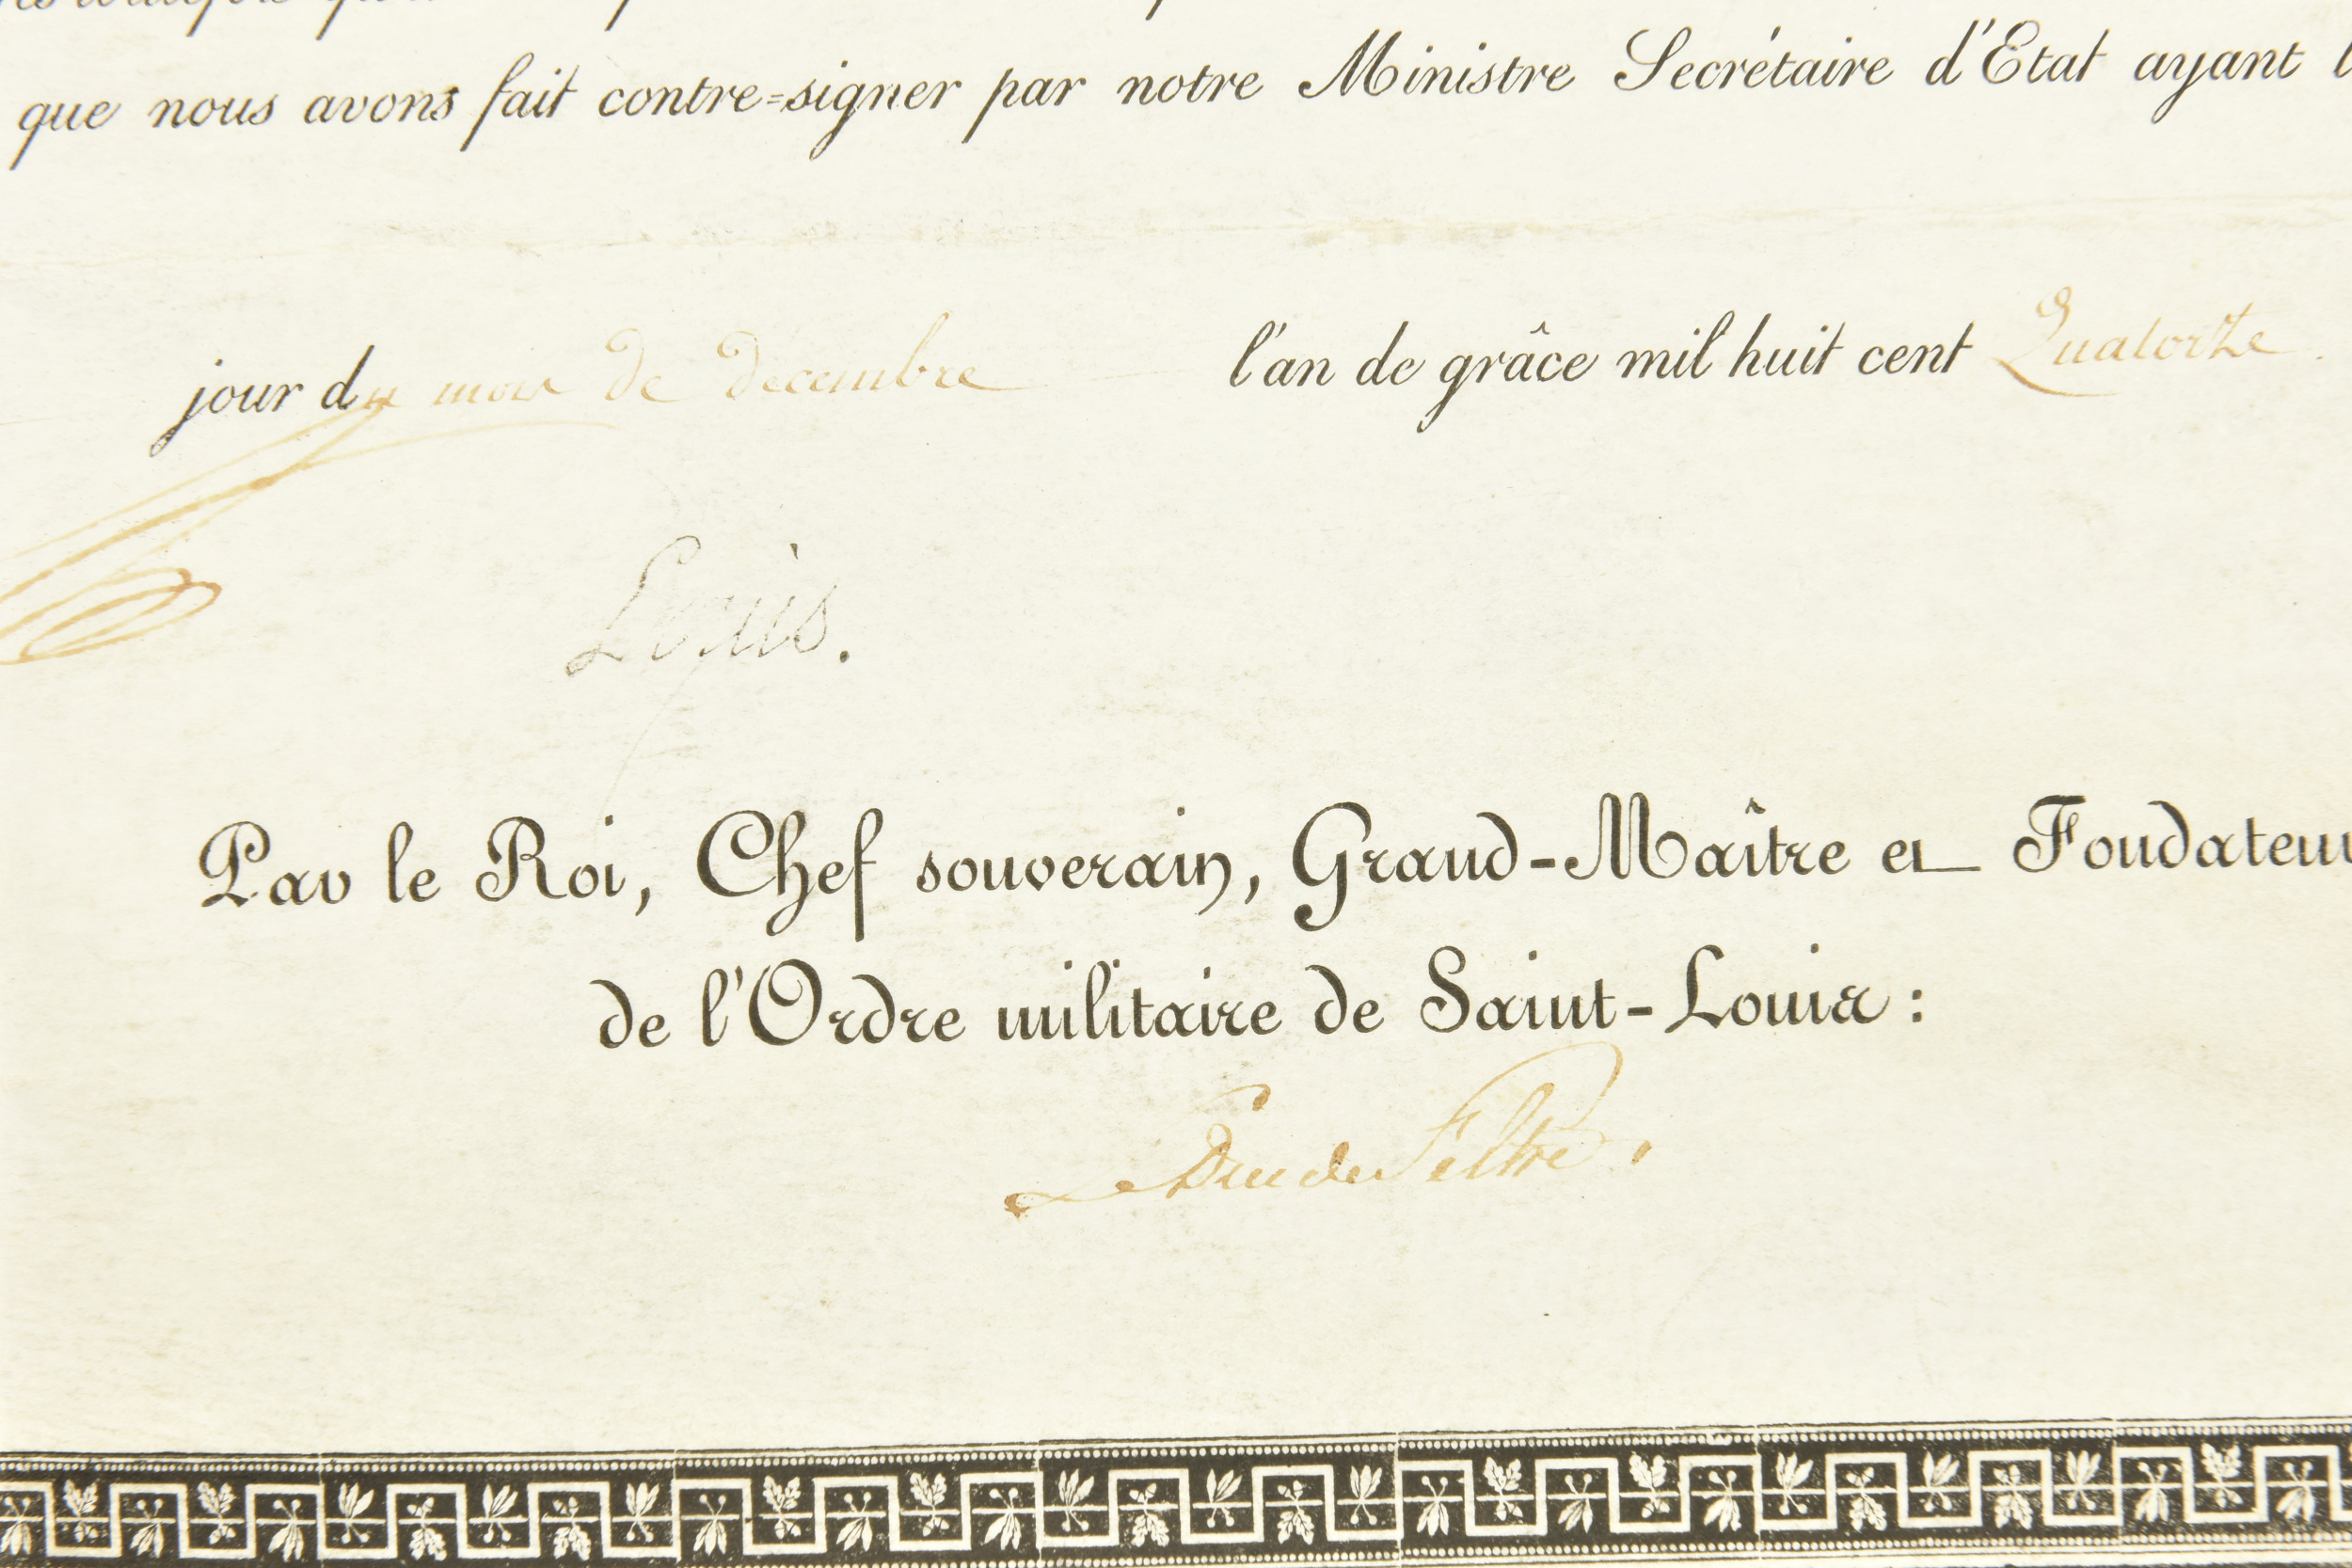 que nous avons fait contre=signer par notre Ministre Secrétaire d'Etat ayant
jour du mois de décembre l'an de grâce mil huit cent Quatorze.
Louis.
Par le Roi, Chef souverain, Grand-Maître et Fondateur
de l'Ordre militaire de Saint-Louis :
Le Duc de Feltre.